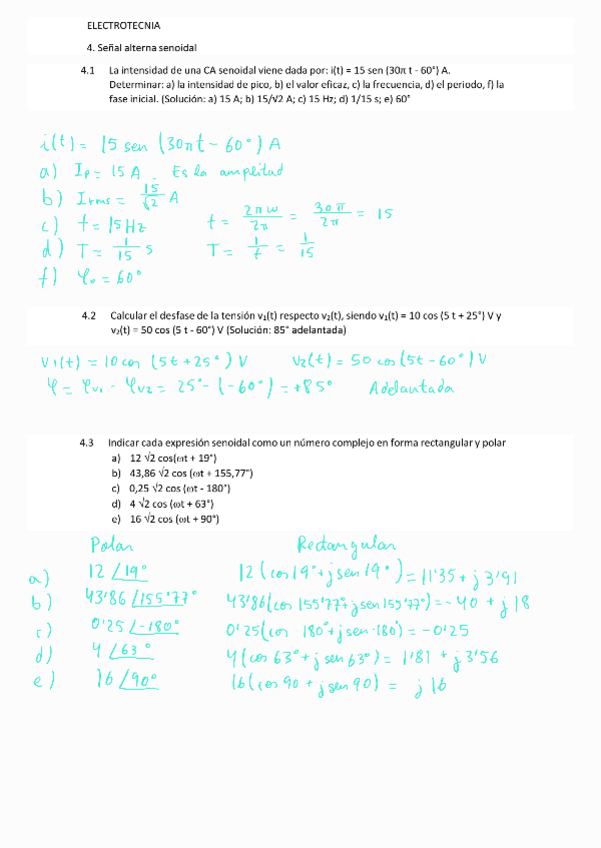 ELECTROTECNIA
4. Señal alterna senoidal
4.1 La intensidad de una CA senoidal viene dada por: i(t) = 15 sen (30π t - 60°) A.
Determinar: a) la intensidad de pico, b) el valor eficaz, c) la frecuencia, d) el periodo, f) la
fase inicial. (Solución: a) 15 A; b) 15/√2 A; c) 15 Hz; d) 1/15 s; e) 60°
i(t) = 15 sen (30πt - 60°) A
a) Ip = 15 A. Es la amplitud
b) Irms = 15/√2 A
c) f = 15 Hz f = 2πw/2π = 30π/2π = 15
d) T = 1/15 s T = 1/f = 1/15
f) φ₀ = 60°
4.2 Calcular el desfase de la tensión v₁(t) respecto v₂(t), siendo v₁(t) = 10 cos (5 t + 25°) V y
v₂(t) = 50 cos (5 t - 60°) V (Solución: 85° adelantada)
V1(t) = 10 cos (5t + 25°) V V2(t) = 50 cos (5t - 60°) V
φ = φv1 - φv2 = 25° - (-60°) = +85° Adelantada
4.3 Indicar cada expresión senoidal como un número complejo en forma rectangular y polar
a) 12 √2 cos(ωt + 19°)
b) 43,86 √2 cos (ωt + 155,77°)
c) 0,25 √2 cos (ωt - 180°)
d) 4 √2 cos (ωt + 63°)
e) 16 √2 cos (ωt + 90°)
Polar Rectangular
a) 12 ∠19° 12 (cos 19° + j sen 19°) = 11'35 + j 3'91
b) 43'86 ∠155'77° 43'86 (cos 155'77° + j sen 155'77°) = - 40 + j 18
c) 0'25 ∠-180° 0'25 (cos 180° + j sen -180°) = - 0'25
d) 4 ∠63° 4 (cos 63° + j sen 63°) = 1'81 + j 3'56
e) 16 ∠90° 16 (cos 90 + j sen 90) = j 16